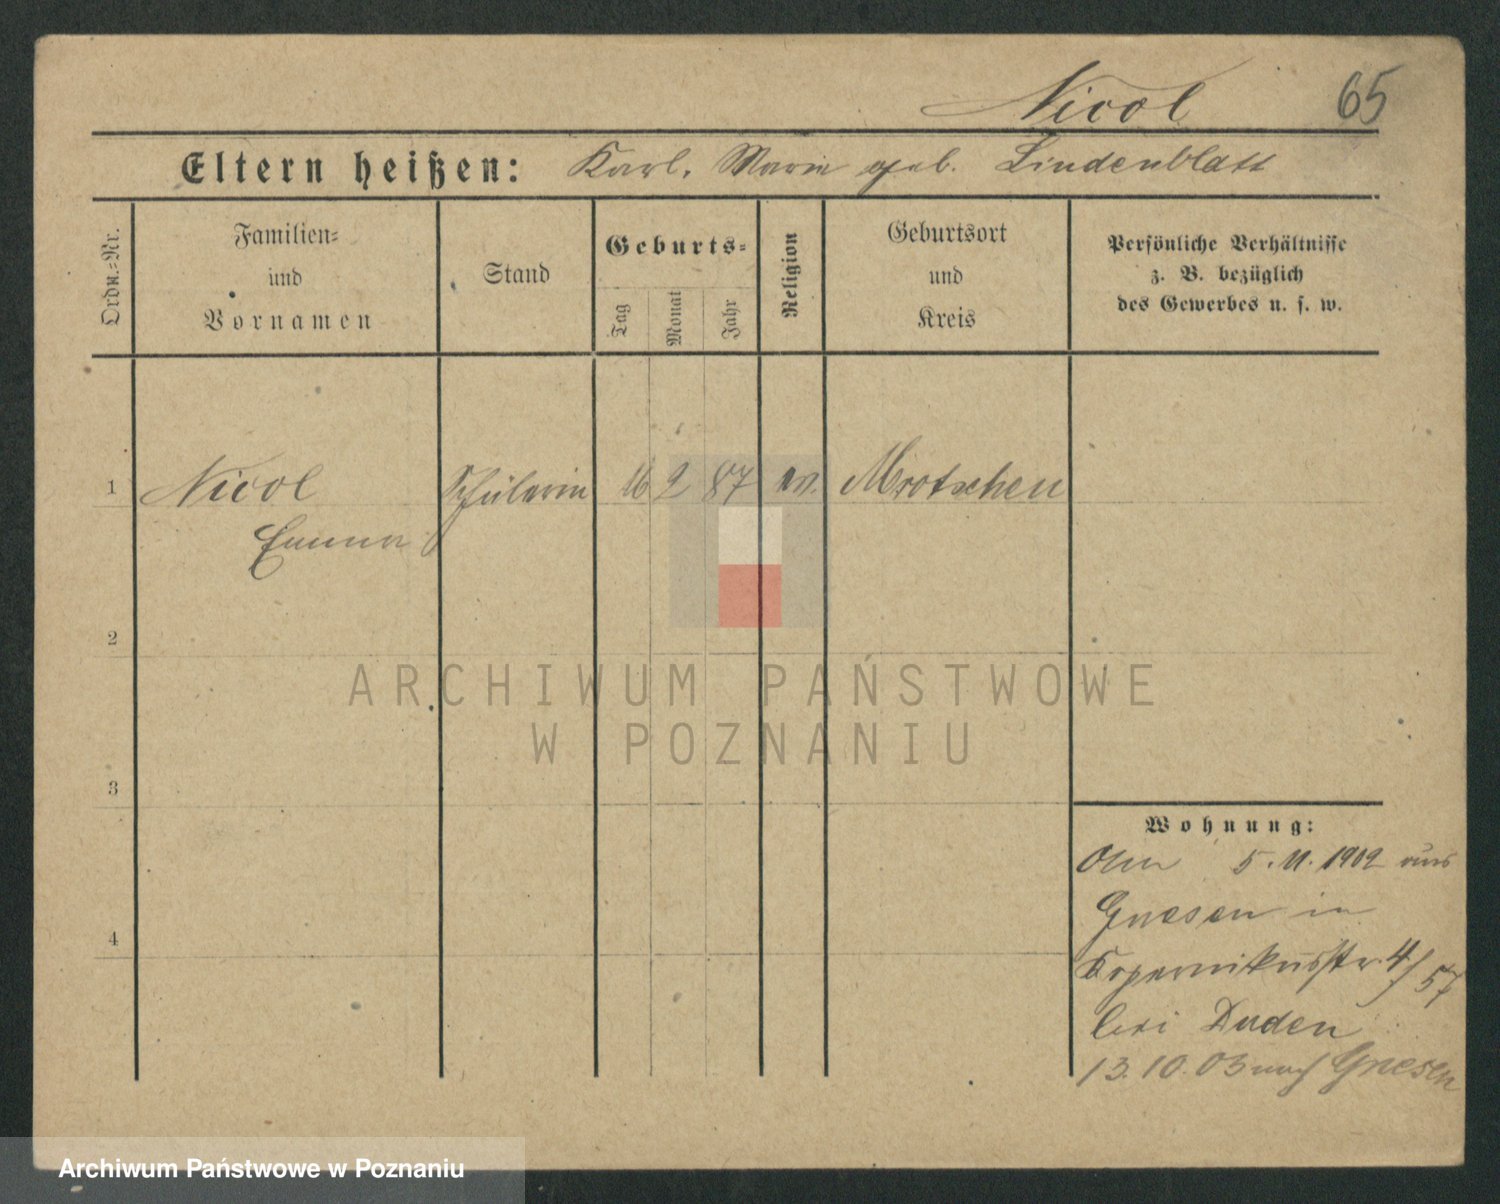 Nicol 65
Eltern heißen: Karl, Marie geb. Lindenblatt
Ordn.=Nr.
Familien=
und
Vornamen
Stand
Geburts=
Tag
Monat
Jahr
Religion
Geburtsort
und
Kreis
Persönliche Verhältnisse
z. B. bezüglich
des Gewerbes u. s. w.
1 Nicol Schülerin 16 2 87 ev. Mrotschen
Emma
2
3
4
ARCHIWUM PAŃSTWOWE
W POZNANIU
Wohnung:
5.11.1902 aus
Gnesen in
Kopernikusstr. 4/57
bei Duden
13.10.03 nach Gnesen
Archiwum Państwowe w Poznaniu